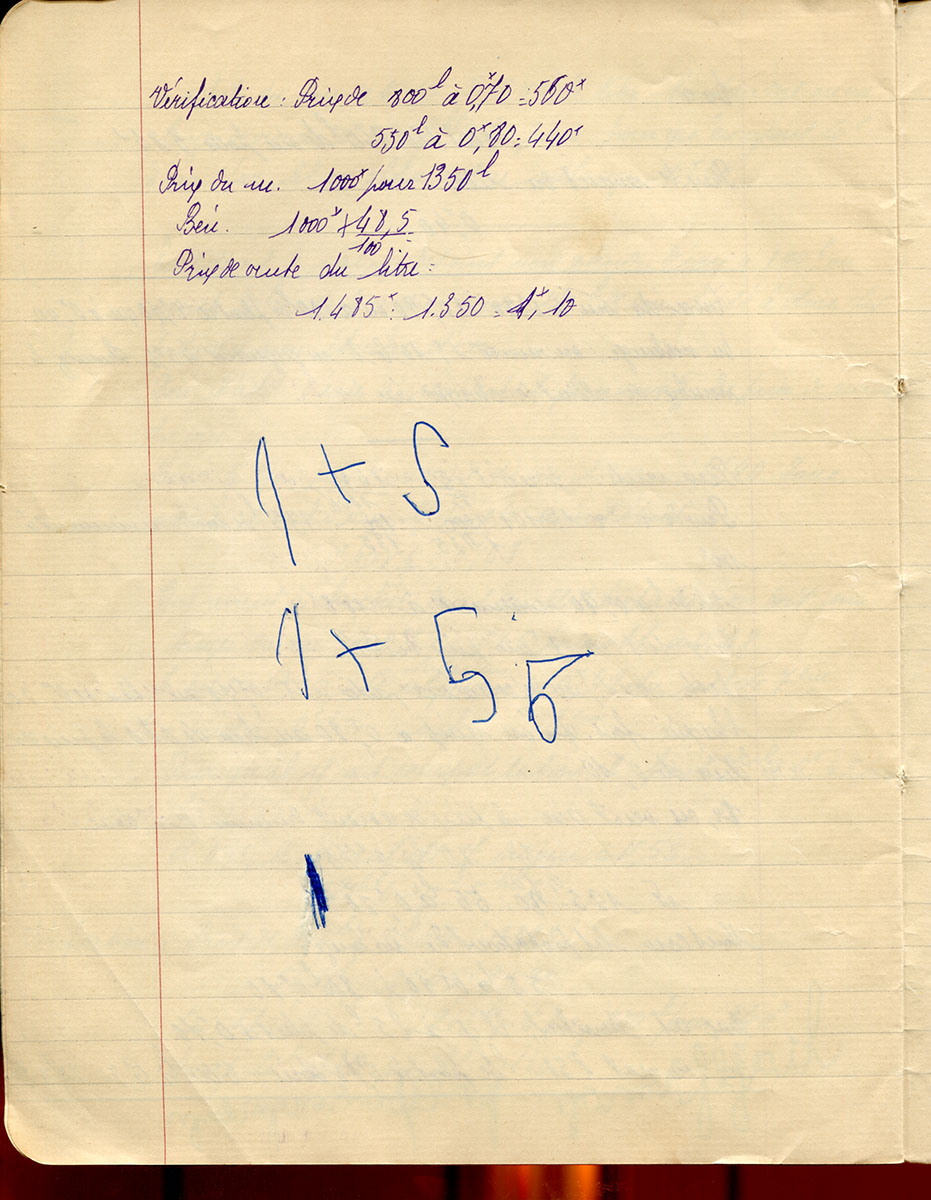 Vérification : Prix de 800ˡ à 0ˣ,70 = 560ˣ
550ˡ à 0ˣ,80 = 440ˣ
Prix du m. 1000ˣ pour 1350ˡ
Bén. 1000ˣ × 48,5
100
Prix de vente du litre =
1.485ˣ : 1.350 = 1ˣ,10
1 + 5
1 + 5
6